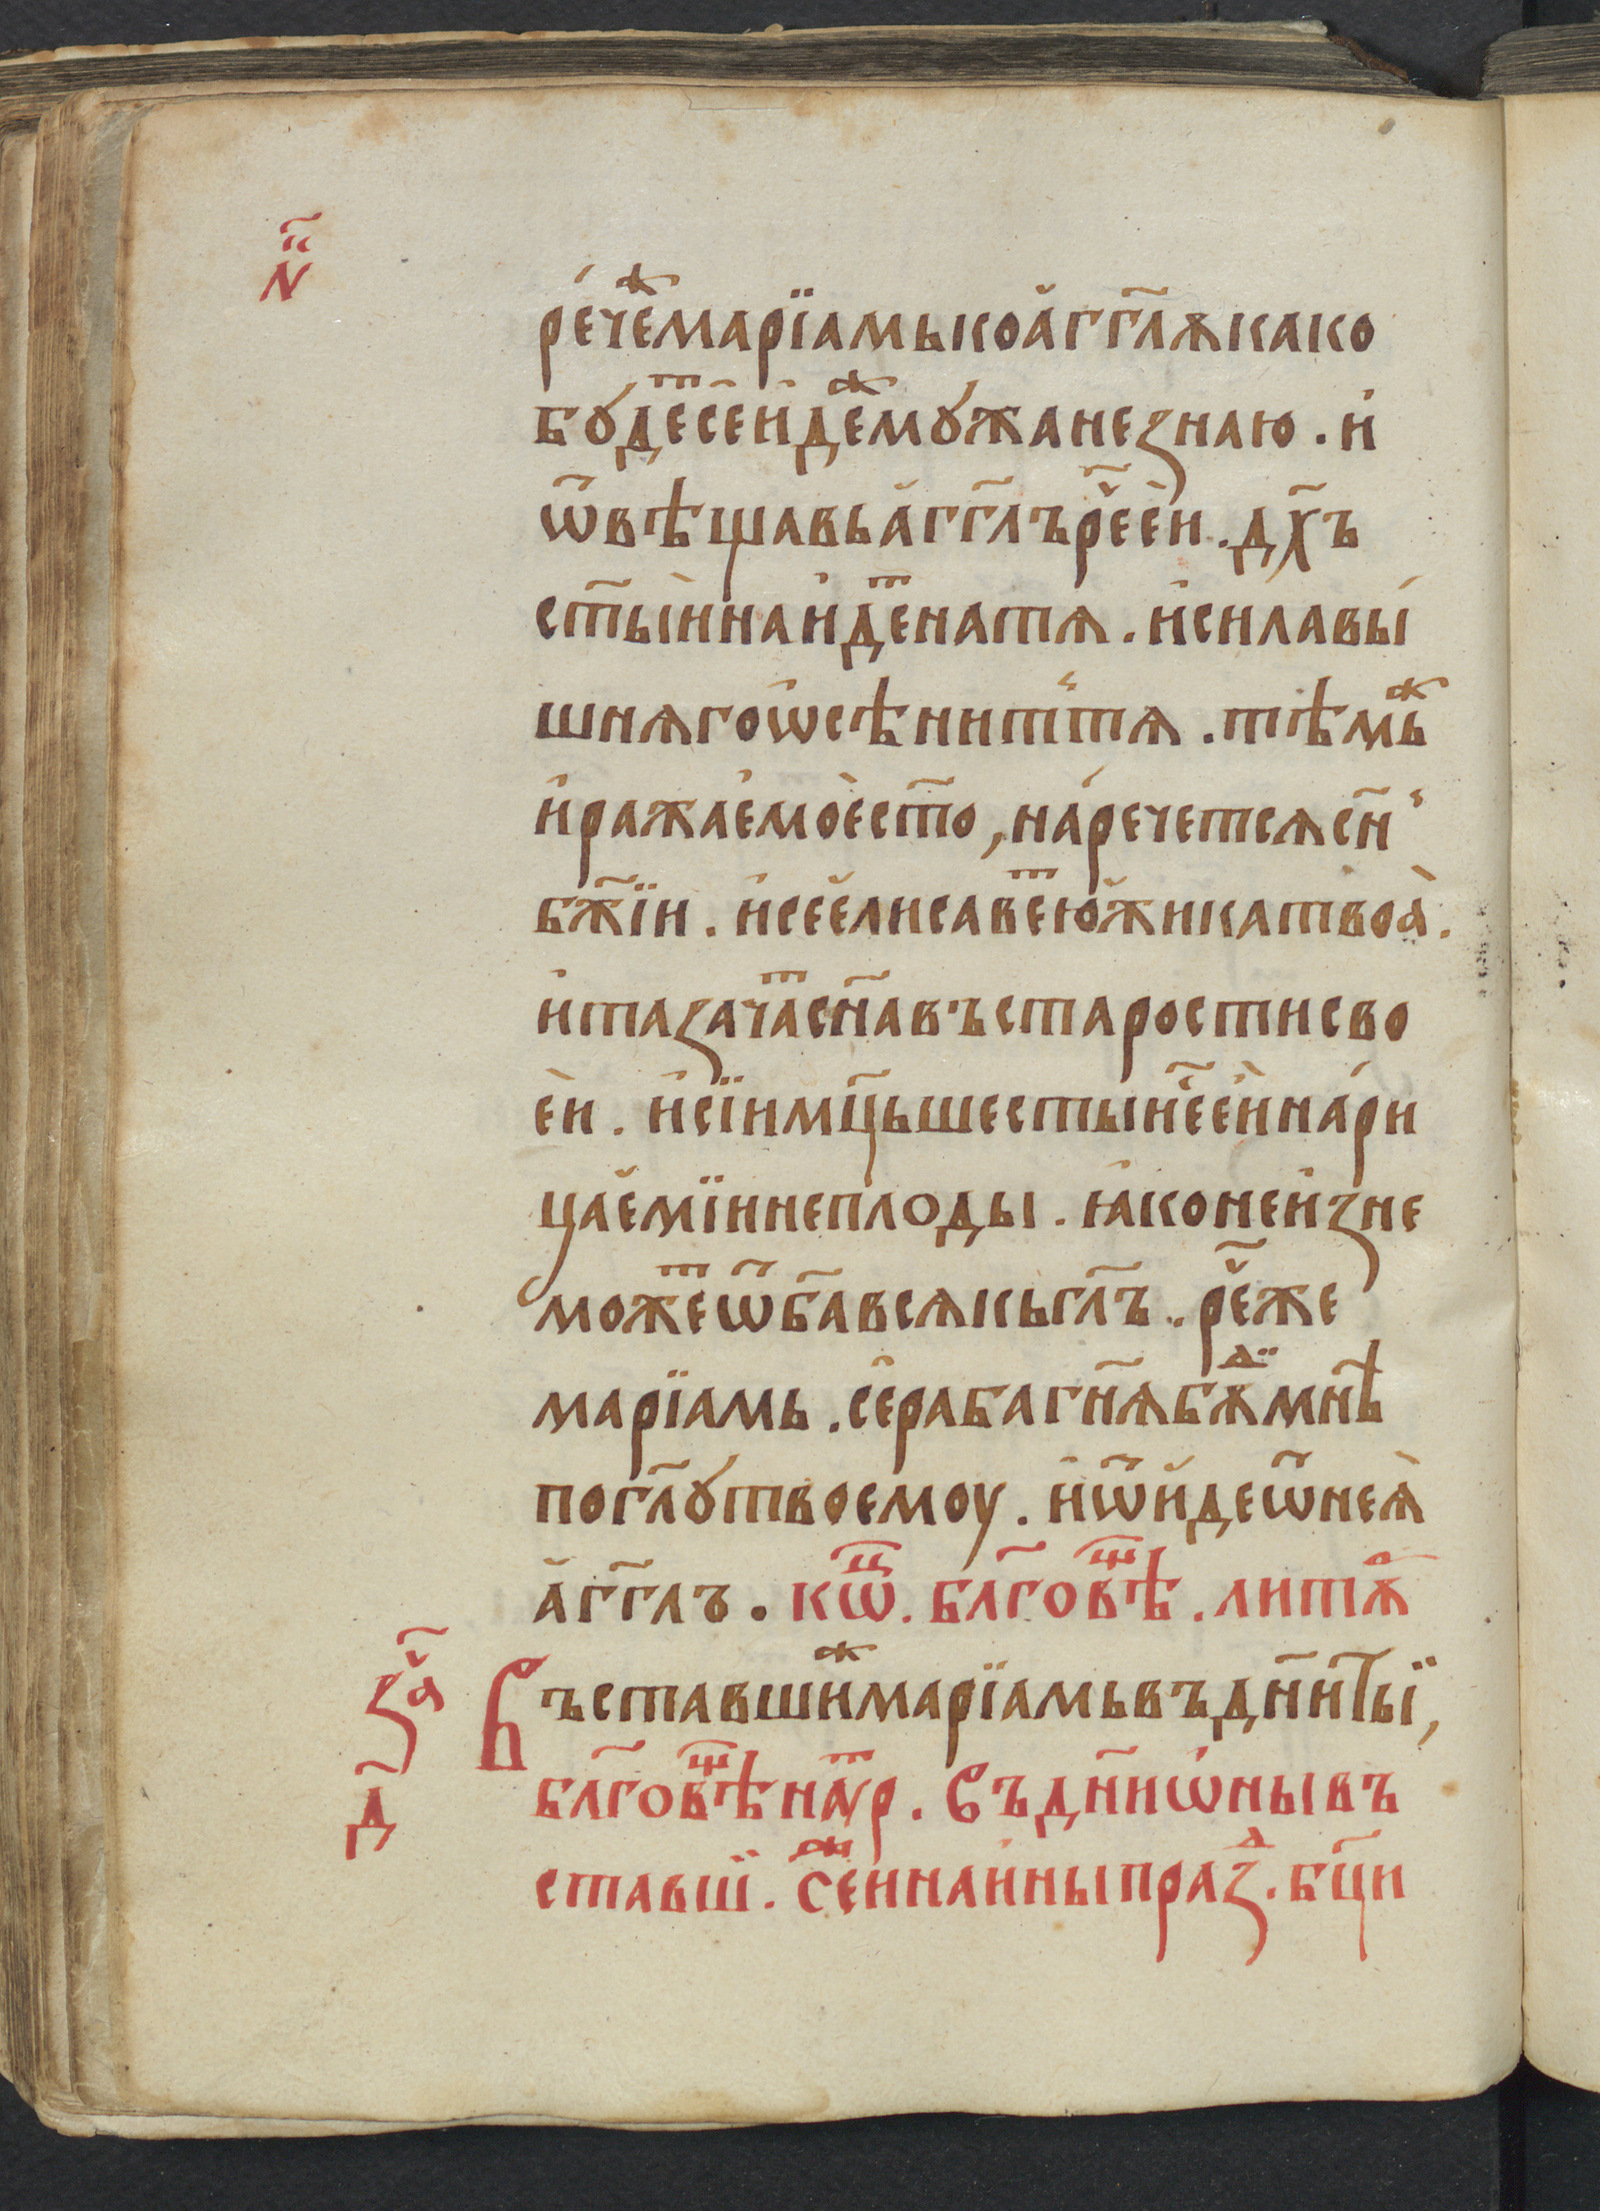 н҃п
ре́чеⷤмарїамькоа҆гг҃лѧкако
бꙋ́деⷮсѐи҆деⷤмꙋ́жанезнаю . и҆
ѿвѣщавьа҆гг҃лър҃ееѝ . дх҃ъ
ст҃ы́ина́и҆деⷮнатѧ . и҆силавы́
шнѧгоѡ҆сѣнитьтѧ . тѣмьⷤ
и҆ража́емоѐст҃о , на́речетсѧсн҃ъ
бж҃їи . и҆сеелисавеⷮю҆жикатвоа̀ .
и҆тазачаⷮсн҃авъстаростисво
еѝ . и҆сїимц҃ьшестыин҃ееѝна́ри
ца́емїинеплоды . ꙗ҆конеи҆зне
можеⷮѿб҃авсѧкъгл҃ъ . р҃еже
марїамь . се҆рабагн҃ѧбѫⷣимнѣ̀
погл҃ꙋ́твоемоу . и҆ѿи҆деѿнеѧ̀
а҆гг҃лъ . кѿⷰ . бл҃говѣⷳ . литѧⷣ
заⷱ҇ д҃ Въставшиⷤмарїамьвъдн҃иты̏ ,
бл҃говѣⷳнаⷮꙋр . Въдн҃иѡ҆нывъ
ставшї . Сеⷤинаи́ныпразⷣ . бц҃и